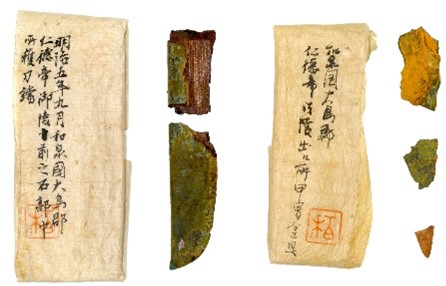 明治五年九月和泉國大鳥郡
仁徳帝御陵前之石郭中
所獲刀
柏
和泉國大鳥郡
仁徳帝御陵出所甲冑金具
柏